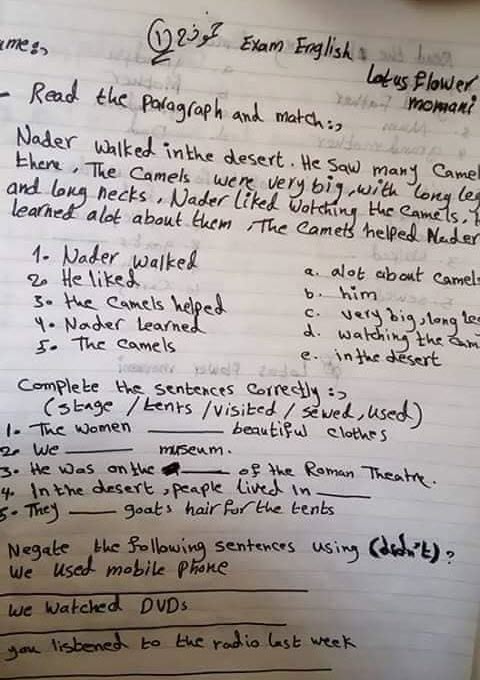 نموذج (1) Exam English
ame:,
Lotus flower
momani
- Read the paragraph and match:,
Nader walked in the desert. He saw many Camel
there, The Camels were very big, with long leg
and long necks, Nader liked watching the camels.
learned alot about them, The Camels helped Nader
1. Nader walked
2. He liked
3. the Camels helped
4. Nader learned
5. The camels
a. alot about camel
b. him
c. very big, long le
d. watching the cam
e. in the desert
Complete the sentences correctly :,
(stage / tents / visited / sewed, used)
1. The women ______ beautiful clothes
2. We ______ museum.
3. He was on the ______ of the Roman Theatre.
4. In the desert, peaple lived in ______
5. They ______ goats hair for the tents
Negate the following sentences using (didn't)?
we used mobile phone
we watched DVDs
you listened to the radio last week